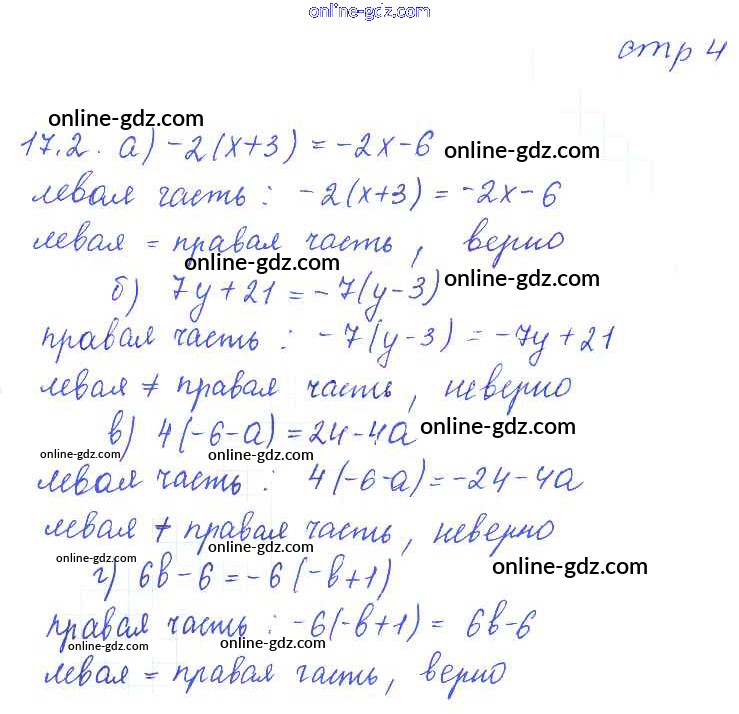 online-gdz.com
стр 4
online-gdz.com
17.2. а) -2(x+3) = -2x-6 online-gdz.com
левая часть: -2(x+3) = -2x-6
левая = правая часть, верно
online-gdz.com
б) 7y+21 = -7(y-3) online-gdz.com
правая часть: -7(y-3) = -7y+21
левая ≠ правая часть, неверно
в) 4(-6-a) = 24-4a online-gdz.com
online-gdz.com online-gdz.com
левая часть: 4(-6-a) = -24-4a
левая ≠ правая часть, неверно
online-gdz.com online-gdz.com
г) 6b-6 = -6(-b+1) online-gdz.com
правая часть: -6(-b+1) = 6b-6
online-gdz.com online-gdz.com
левая = правая часть, верно